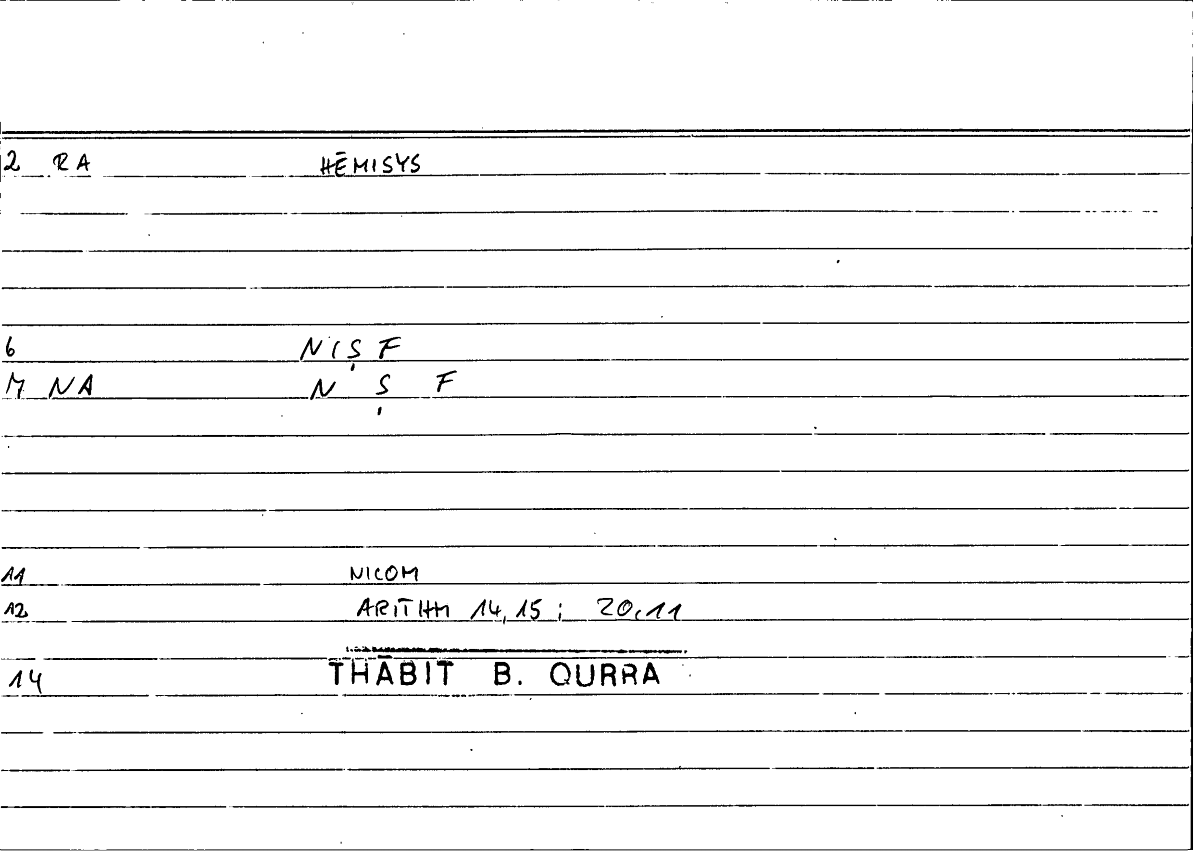 2 RA HĒMISYS
6 NIṢF
7 NA N Ṣ F
11 NICOM
12 ARITHM 14,15 ; 20,11
14 THĀBIT B. QURRA